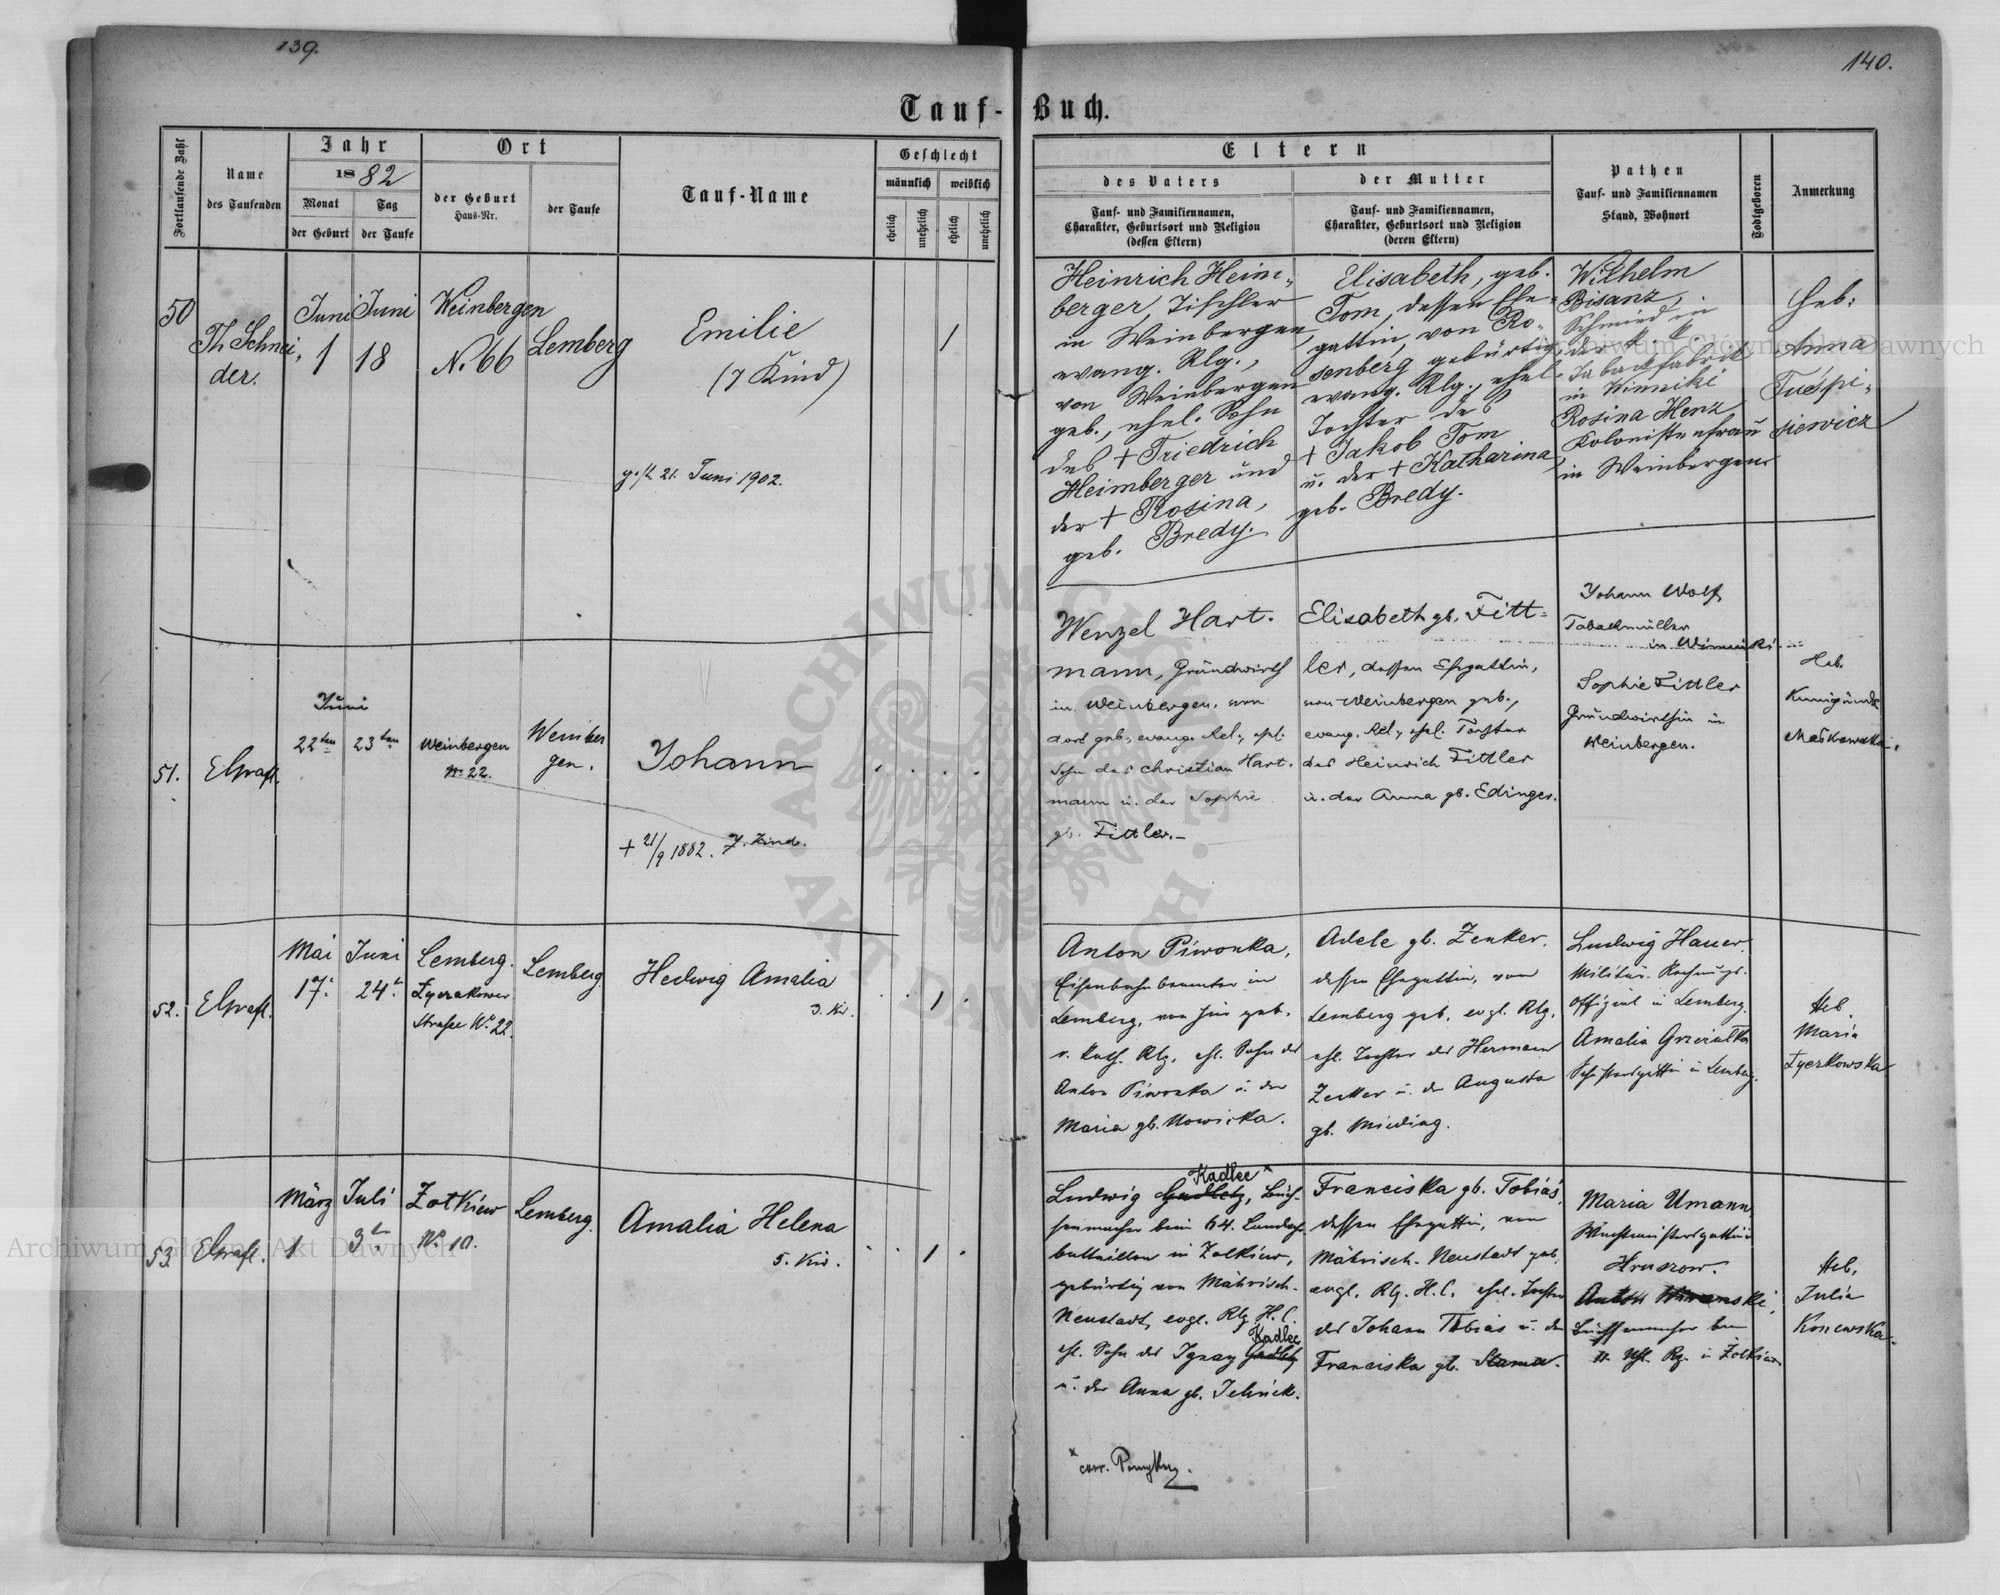 139.
140.
Tauf-Buch.
Fortlaufende Zahl
Name
des Taufenden
Jahr
1882
Monat
der Geburt
Tag
der Taufe
Ort
der Geburt
Haus-Nr.
der Taufe
Tauf-Name
Geschlecht
männlich
weiblich
ehelich
unehelich
ehelich
unehelich
Eltern
des Vaters
Tauf- und Familiennamen,
Charakter, Geburtsort und Religion
(dessen Eltern)
der Mutter
Tauf- und Familiennamen,
Charakter, Geburtsort und Religion
(deren Eltern)
Pathen
Tauf- und Familiennamen
Stand, Wohnort
Todtgeboren
Anmerkung
50
Th. Schnei-
der.
Juni
1
Juni
18
Weinbergen
N. 66
Lemberg
Emilie
(7 Kind)
1
21. Juni 1902.
Heinrich Heim-
berger, Tischler
in Weinbergen,
evang. Rlg.,
von Weinbergen
geb., ehel. Sohn
des + Friedrich
Heimberger und
der + Rosina,
geb. Bredy.
Elisabeth, geb.
Tom, dessen Ehe-
gattin, von Ro-
senberg gebürtig,
evang. Rlg., ehel.
Tochter des
+ Jakob Tom
u. der + Katharina,
geb. Bredy.
Wilhelm
Bisanz,
Schmied in
der k. k.
Tabakfabrik
in Winniki
Rosina Henz
Kolonistenfrau
in Weinbergen
Heb.
Anna
51.
Juni
22ten
23ten
Weinbergen
N. 22.
Weinber
gen.
Johann
+ 21/9 1882. 7. Kind.
Wenzel Hart-
mann, Grundwirth
in Weinbergen, von
dort geb., evang. Rel., ehel.
Sohn des Christian Hart-
mann u. der Sophie
gb. Fittler.-
Elisabeth gb. Fitt-
ler, dessen Ehgattin,
von Weinbergen geb.,
evang. Rel., ehel. Tochter
des Heinrich Fittler
u. der Anna gb. Edinger.
Johann Wolf,
Tabackmüller
in Winniki.
Sophie Fittler
Grundwirthin in
Weinbergen.
Heb.
Kunigunde
52.
Mai
17.
Juni
24.
Lemberg.
Łyczakower
Straße N. 22.
Lemberg
Hedwig Amalia
3. Ki.
1
Anton Piwonka,
Eisenbahnbeamter in
Lemberg, von hier geb.
r. kath. Rlg. ehl. Sohn des
Anton Piwonka u. der
Maria gb. Nowicka.
Adele gb. Zenker,
dessen Ehegattin, von
Lemberg geb. evgl. Rlg.
ehl. Tochter des Hermann
Zenker u. der Augusta
gb. Mieding.
Ludwig Hauer,
Militär. Rechnugs.
offizial in Lemberg.
Amalia
in Lemberg.
Heb.
Maria
Łyczkowska
53.
März
1
Juli
3
Żołkiew
N. 10.
Lemberg.
Amalia Helena
5. Kin.
1
Kadlec x
Ludwig Büch-
senmacher beim 64. Landw.
bataillon in Żołkiew,
gebürtig von Mährisch-
Neustadt, evgl. Rlg. H.C.
Kadlec
ehl. Sohn des Ignaz
u. der Anna gb. Jelinek.
Franciska gb. Tobias,
dessen Ehegattin, von
Mährisch-Neustadt geb.
evgl. Rlg. H.C. ehel. Tochter
des Johann Tobias u. der
Franciska gb.
Maria Umann,
Wachtmeistersgattin
Hruszow.
Anton
Büchsenmacher beim
in Żołkiew
Heb.
Julia
Koniewska.
x corr.
Archiwum Główne Akt Dawnych
Archiwum Główne Akt Dawnych
ARCHIWUM GŁÓWNE AKT DAWNYCH